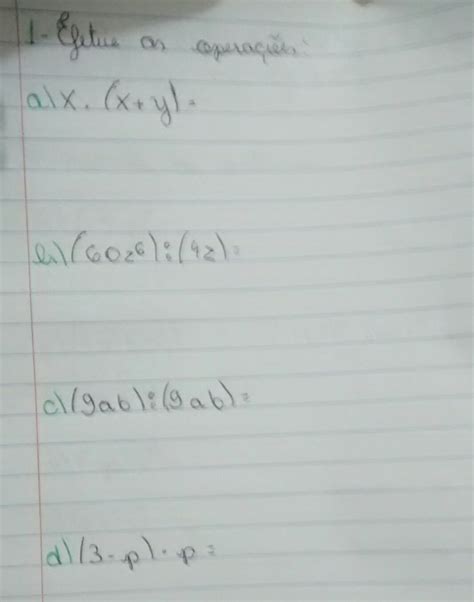 1- Efetue as operações:
a) x . (x + y) =
b) (60z⁶) : (4z) =
c) (9ab) : (9ab) =
d) (3 - p) . p =